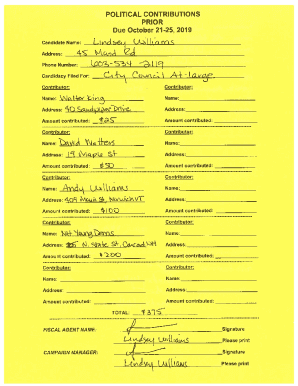 POLITICAL CONTRIBUTIONS
PRIOR
Due October 21-25, 2019
Candidate Name: Lindsey Williams
Address: 45 Rd
Phone Number: 603-534-2119
Candidacy Filed For: City Council At-large
Contributor: Contributor:
Name: Walter King Name:
Address: 40 Drive Address:
Amount contributed: $25 Amount contributed:
Contributor: Contributor:
Name: David Watters Name:
Address: 19 Maple St Address:
Amount contributed: $50 Amount contributed:
Contributor: Contributor:
Name: Andy Williams Name:
Address: 409 Main St, Norwich VT Address:
Amount contributed: $100 Amount contributed:
Contributor: Contributor:
Name: NH Young Dems Name:
Address: N. State St, Concord NH Address:
Amount contributed: $200 Amount contributed:
Contributor: Contributor:
Name: Name:
Address: Address:
Amount contributed: Amount contributed:
TOTAL: $375
FISCAL AGENT NAME: Signature
Lindsey Williams Please print
CAMPAIGN MANAGER: Signature
Lindsey Williams Please print